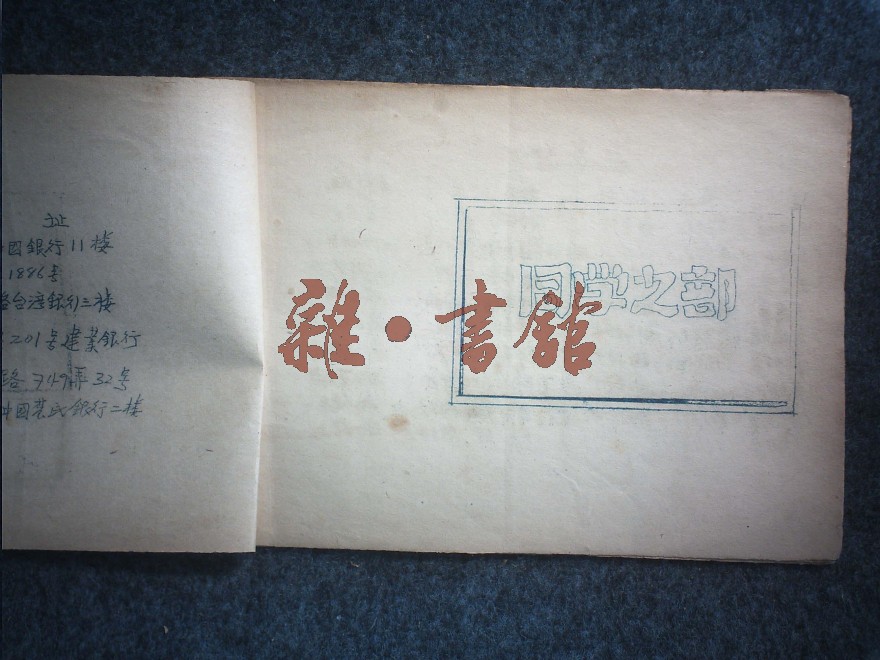 址
國銀行11樓
1886号
台湾銀行三樓
201号建業銀行
路749弄32号
中國農民銀行二樓
同学之部
雜·書館